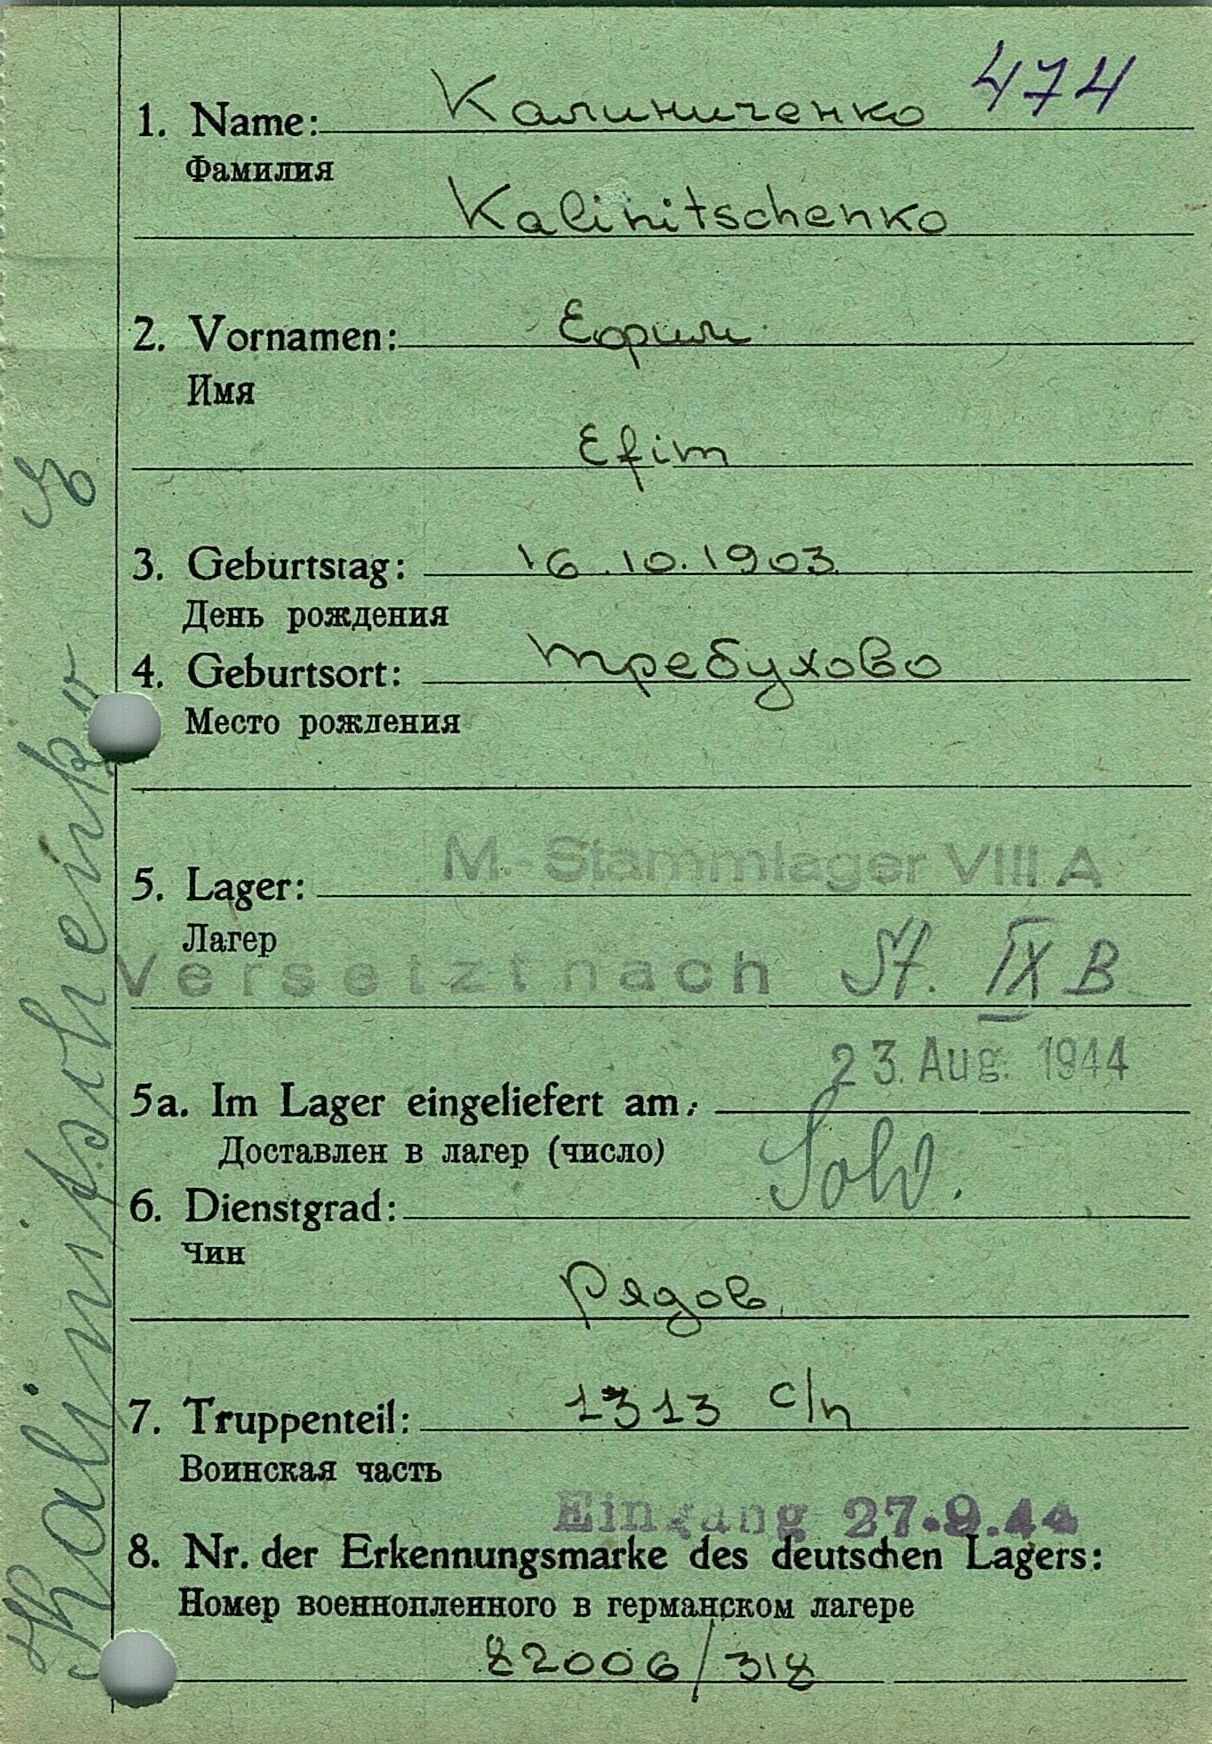 474
1. Name: Калиниченко
Фамилия
Kalinitschenko
2. Vornamen: Ефим
Имя
Efim
3. Geburtstag: 16.10.1903
День рождения
4. Geburtsort: Требухово
Место рождения
M.-Stammlager VIII A
5. Lager:
Лагер
Versetzt nach St. IX B
23. Aug. 1944
5a. Im Lager eingeliefert am:
Доставлен в лагер (число)
6. Dienstgrad: Sold.
Чин
Рядов.
7. Truppenteil: 1313 с/п
Воинская часть
Eingang 27.9.44
8. Nr. der Erkennungsmarke des deutschen Lagers:
Номер военнопленного в германском лагере
82006/318
Kalinitschenko E